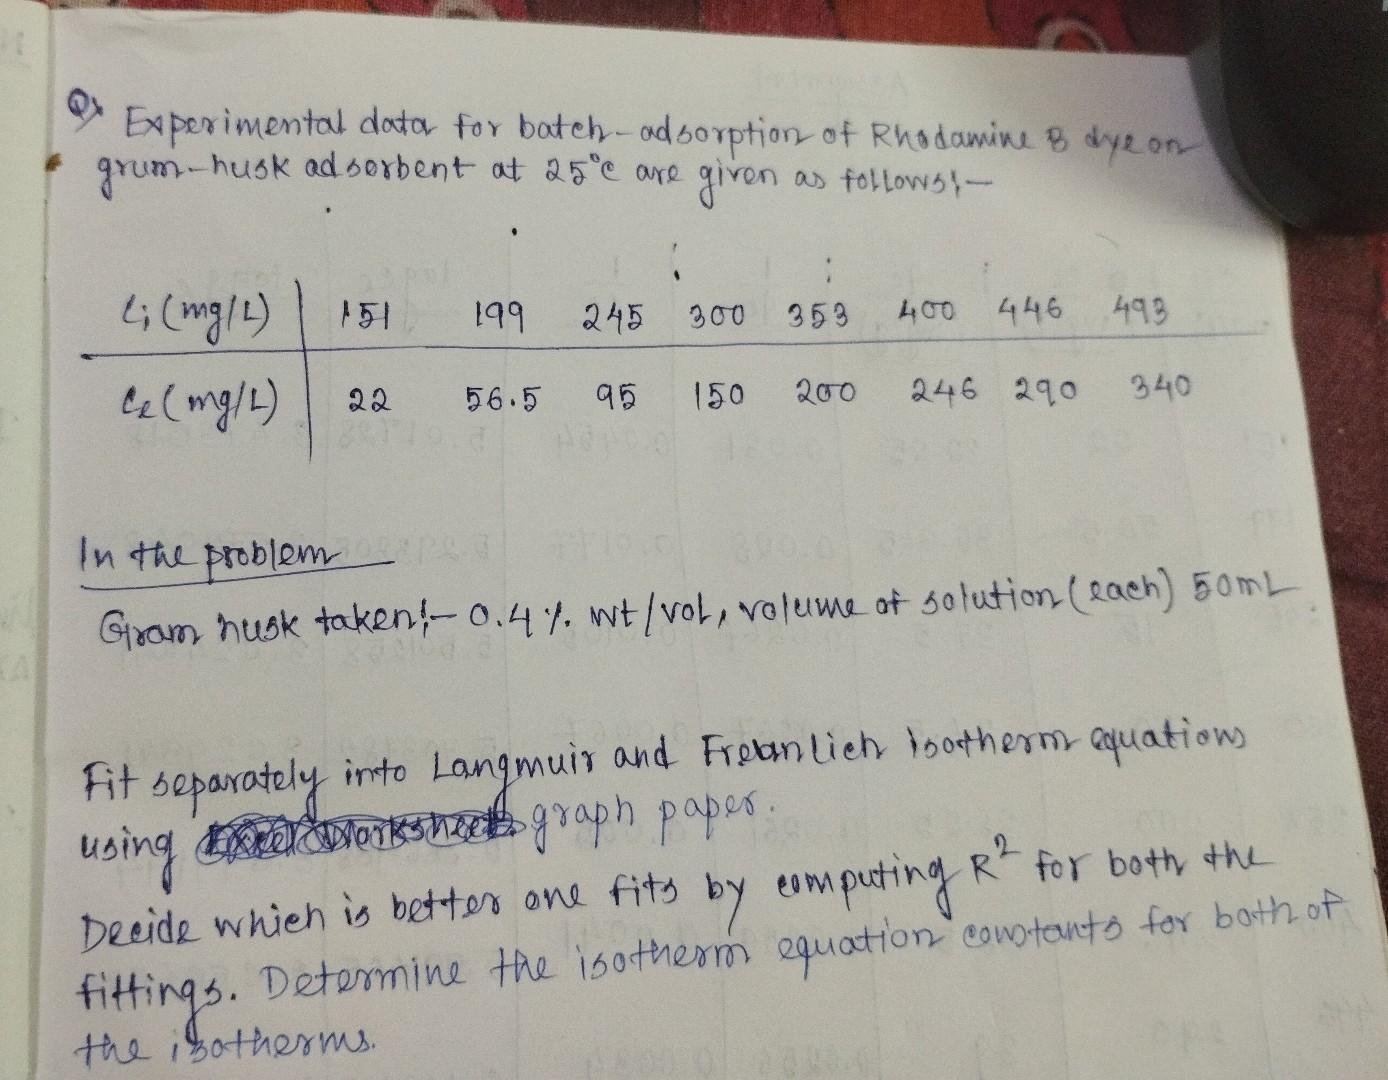 Q> Experimental data for batch-adsorption of Rhodamine B dye on
grum-husk adsorbent at 25°C are given as follows:-
Ci (mg/L) 151 199 245 300 353 400 446 493
Ce (mg/L) 22 56.5 95 150 200 246 290 340
In the problem
Gram husk taken:- 0.4 %. wt/vol, volume of solution (each) 50mL
Fit separately into Langmuir and Freunlich isotherm equations
using graph paper.
Decide which is better one fits by computing R² for both the
fittings. Determine the isotherm equation constants for both of
the isotherms.